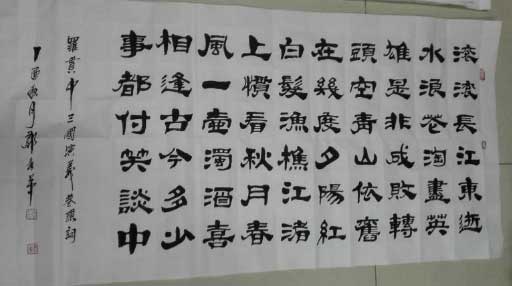 滚滚長江東逝
水浪花淘盡英
雄是非成敗轉
頭空青山依舊
在幾度夕陽紅
白髮漁樵江渚
上慣看秋月春
風一壺濁酒喜
相逢古今多少
事都付笑談中
羅貫中三國演義卷詞
丁酉秋月